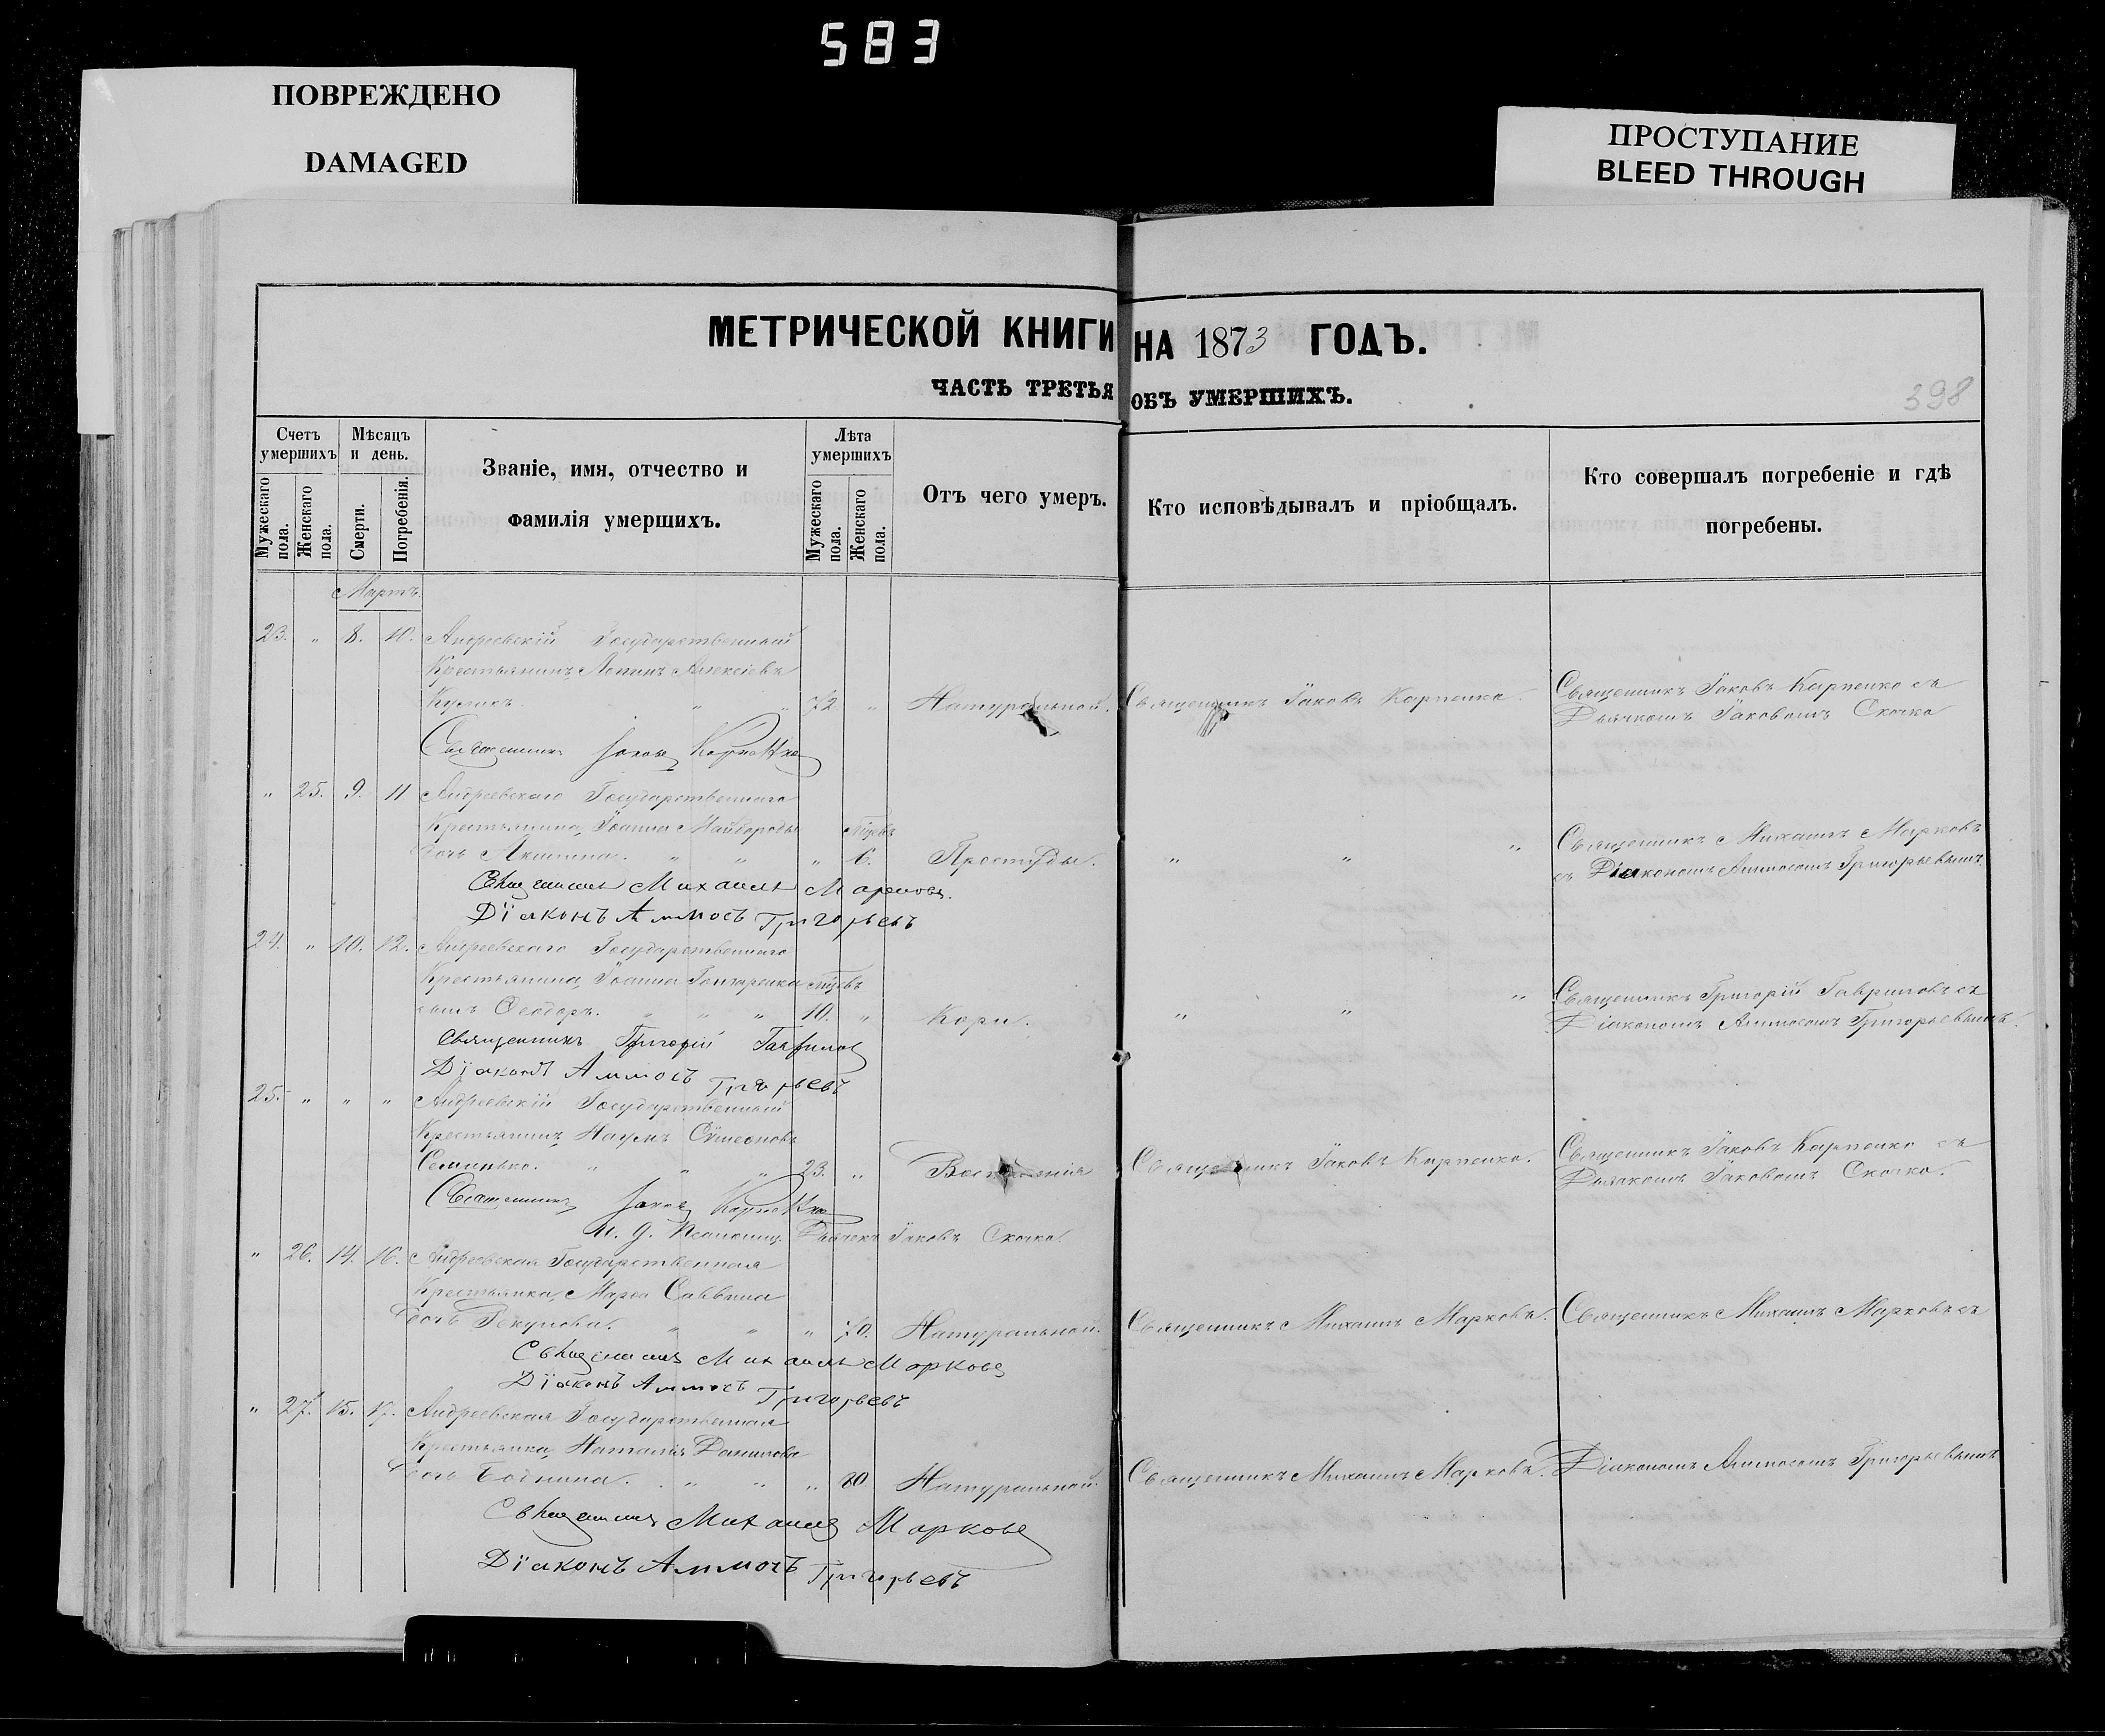 583
ПОВРЕЖДЕНО
DAMAGED
ПРОСТУПАНИЕ
BLEED THROUGH
МЕТРИЧЕСКОЙ КНИГИ НА 1873 ГОДЪ.
ЧАСТЬ ТРЕТЬЯ ОБЪ УМЕРШИХЪ.
398
Счетъ умершихъ
Мужескаго пола.
Женскаго пола.
Мѣсяцъ и день.
Смерти.
Погребенія.
Званіе, имя, отчество и
фамилія умершихъ.
Лѣта умершихъ
Мужескаго пола.
Женскаго пола.
Отъ чего умеръ.
Кто исповѣдывалъ и пріобщалъ.
Кто совершалъ погребеніе и гдѣ
погребены.
Мартъ.
23. " 8. 10. Андреевскій Государственный
Крестьянинъ, Алексіевъ
Куликъ. " " 72. " Натуральной. Священникъ Іаковъ Карпенко. Священникъ Іаковъ Карпенко съ
Дьячкомъ Іаковомъ Скочко
Священникъ Іаковъ Карпенко
" 25. 9. 11 Андреевскаго Государственнаго
Крестьянина, Іоанна Майбороды мѣсяцевъ
дочь Акилина. " " " 6. Простуды. " " " Священникъ Михаилъ Марковъ
съ Діакономъ Аммосомъ Григорьевымъ.
Священникъ Михаилъ Марковъ.
Діаконъ Аммосъ Григорьевъ
24. " 10. 12. Андреевскаго Государственнаго
Крестьянина, Іоанна Гончаренка мѣсяцевъ
сынъ Ѳеодоръ. " " " 10. " Кори. " " " Священникъ Григорій Гавриловъ съ
Діакономъ Аммосомъ Григорьевымъ.
Священникъ Григорій Гавриловъ
Діаконъ Аммосъ Григорьевъ
25. " " " Андреевскій Государственный
Крестьянинъ, Наумъ Симеоновъ
Семинько. " " " 23. " Священникъ Іаковъ Карпенко. Священникъ Іаковъ Карпенко съ
Дьячкомъ Іаковомъ Скочко.
Священникъ Іаковъ Карпенко
И. д. Псаломщ. Дьячекъ Іаковъ Скочко.
" 26. 14. 16. Андреевская Государственная
Крестьянка, Марѳа Саввина
дочь Рекунова. " " " 70. Натуральной. Священникъ Михаилъ Марковъ. Священникъ Михаилъ Марковъ съ
Священникъ Михаилъ Марковъ
Діаконъ Аммосъ Григорьевъ
" 27. 15. 17. Андреевская Государственная
Крестьянка, Наталія Данилова
дочь Бодкина. " " " 80. Натуральной. Священникъ Михаилъ Марковъ. Діакономъ Аммосомъ Григорьевымъ
Священникъ Михаилъ Марковъ
Діаконъ Аммосъ Григорьевъ